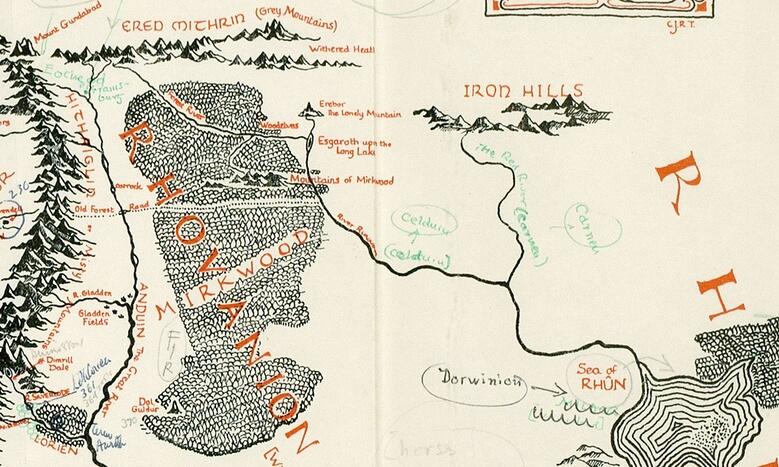 Mount Gundabad
ERED MITHRIN (Grey Mountains)
C.J.R.T.
Withered Heath
Eotheod
Framsburg
HITHAEGLIR
Forest River
Erebor
The Lonely Mountain
IRON HILLS
Woodelves
Esgaroth upon the
Long Lake
The Red River (Carnen)
R
Mountains of Mirkwood
Carrock
Old Forest Road
River Running
Celduin
(Celduin)
Carnen
RHOVANION
MIRKWOOD
H
Misty
Mountains
R. Gladden
Gladden
Fields
ANDUIN The Great River
FIR
Dimrill
Dale
Lothlorien
361
Dorwinion
Sea of
RHÛN
Dol
Guldur
390
LORIEN